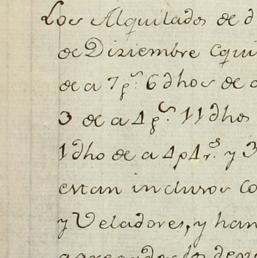 Los Alquilados de d
de Diziembre equi
de a 7 p.s 6 dhos de a
3 de a 4 p.s 11 dhos
1 dho de a 4 p 4 r.s y 3
estan inclusos Co
y Veladores, y han